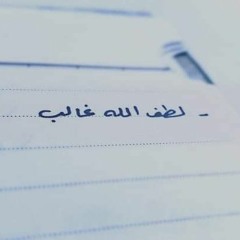 - لطف الله غالب